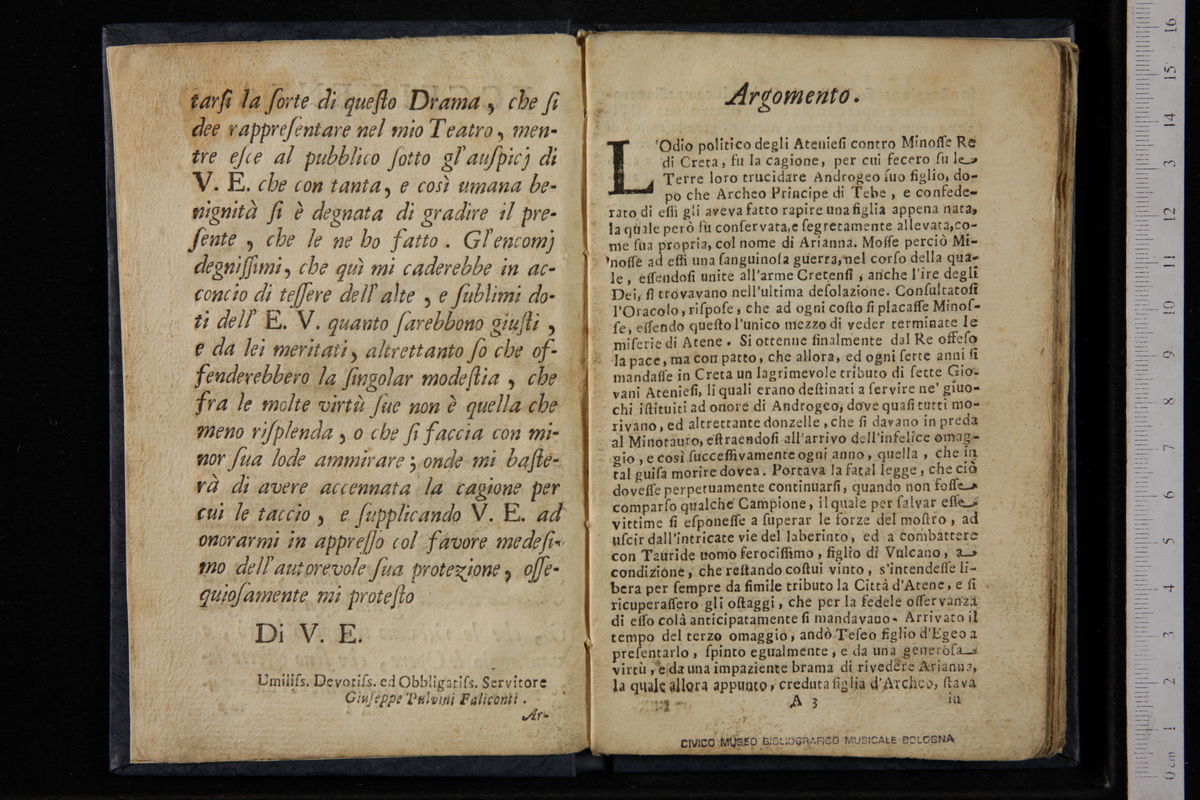 tarſi la ſorte di queſto Drama, che ſi
dee rappreſentare nel mio Teatro, men-
tre eſce al pubblico ſotto gl'auſpicj di
V. E. che con tanta, e così umana be-
nignità ſi è degnata di gradire il pre-
ſente, che le ne ho fatto. Gl'encomj
degniſſimi, che quì mi caderebbe in ac-
concio di teſſere dell'alte, e ſublimi do-
ti dell' E. V. quanto ſarebbono giuſti,
e da lei meritati, altrettanto ſo che of-
fenderebbero la ſingolar modeſtia, che
fra le molte virtù ſue non è quella che
meno riſplenda, o che ſi faccia con mi-
nor ſua lode ammirare; onde mi baſte-
rà di avere accennata la cagione per
cui le taccio, e ſupplicando V. E. ad
onorarmi in appreſſo col favore medeſi-
mo dell'autorevole ſua protezione, oſſe-
quioſamente mi proteſto
Di V. E.
Umiliſs. Devotiſs. ed Obbligatiſs. Servitore
Giuſeppe Pulvini Faliconti.
Ar-
Argomento.
L'Odio politico degli Atenieſi contro Minoſſe Re
di Creta, fu la cagione, per cui fecero ſu le
Terre loro trucidare Androgeo ſuo figlio, do-
po che Archeo Principe di Tebe, e confede-
rato di eſſi gli aveva fatto rapire una figlia appena nata,
la quale però fù conſervata, e ſegretamente allevata, co-
me ſua propria, col nome di Arianna. Moſſe perciò Mi-
noſſe ad eſſi una ſanguinoſa guerra, nel corſo della qua-
le, eſſendoſi unite all'arme Cretenſi, anche l'ire degli
Dei, ſi trovavano nell'ultima deſolazione. Conſultatoſi
l'Oracolo, riſpoſe, che ad ogni coſto ſi placaſſe Minoſ-
ſe, eſſendo queſto l'unico mezzo di veder terminate le
miſerie di Atene. Si ottenne finalmente dal Re offeſo
la pace, ma con patto, che allora, ed ogni ſette anni ſi
mandaſſe in Creta un lagrimevole tributo di ſette Gio-
vani Atenieſi, li quali erano deſtinati a ſervire ne' giuo-
chi iſtituiti ad onore di Androgeo, dove quaſi tutti mo-
rivano, ed altrettante donzelle, che ſi davano in preda
al Minotauro, eſtraendoſi all'arrivo dell'infelice omag-
gio, e così ſucceſſivamente ogni anno, quella, che in
tal guiſa morire dovea. Portava la fatal legge, che ciò
doveſſe perpetuamente continuarſi, quando non foſſe
comparſo qualche Campione, il quale per ſalvar eſſe
vittime ſi eſponeſſe a ſuperar le forze del moſtro, ad
uſcir dall'intricate vie del laberinto, ed a combattere
con Tauride uomo ferociſſimo, figlio di Vulcano, a
condizione, che reſtando coſtui vinto, s'intendeſſe li-
bera per ſempre da ſimile tributo la Città d'Atene, e ſi
ricuperaſſero gli oſtaggi, che per la fedele oſſervanza
di eſſo colà anticipatamente ſi mandavano. Arrivato il
tempo del terzo omaggio, andò Teſeo figlio d'Egeo a
preſentarlo, ſpinto egualmente, e da una generoſa
virtù, e da una impaziente brama di rivedere Arianna,
la quale allora appunto, creduta figlia d'Archeo, ſtava
A 3 in
CIVICO MUSEO BIBLIOGRAFICO MUSICALE BOLOGNA
0 cm 1 2 3 4 5 6 7 8 9 10 11 12 3 14 15 16